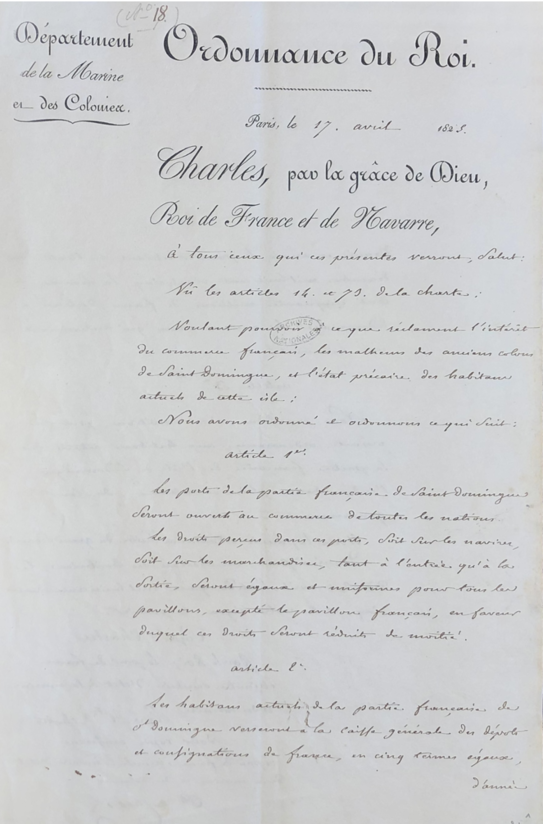 (No 18.)
Département
de la Marine
et des Colonies.
Ordonnance du Roi.
Paris, le 17. avril 1825.
Charles, par la grâce de Dieu,
Roi de France et de Navarre,
À tous ceux qui ces présentes verront, Salut:
Vû les articles 14. et 73. de la charte;
Voulant pourvoir à ce que réclament l'intérêt
ARCHIVES
NATIONALES
du commerce français, les malheurs des anciens colons
de Saint Domingue, et l'état précaire des habitans
actuels de cette isle;
Nous avons ordonné et ordonnons ce qui suit:
article 1er.
Les ports de la partie française de Saint Domingue
seront ouverts au commerce de toutes les nations
Les droits perçus dans ces ports, soit sur les navires,
soit sur les marchandises, tant à l'entrée qu'à la
sortie, seront égaux et uniformes pour tous les
pavillons, excepté le pavillon français, en faveur
duquel ces droits seront réduits de moitié.
article 2e.
Les habitans actuels de la partie française de
St Domingue verseront à la caisse générale des dépôts
et consignations de france, en cinq termes égaux,
d'année